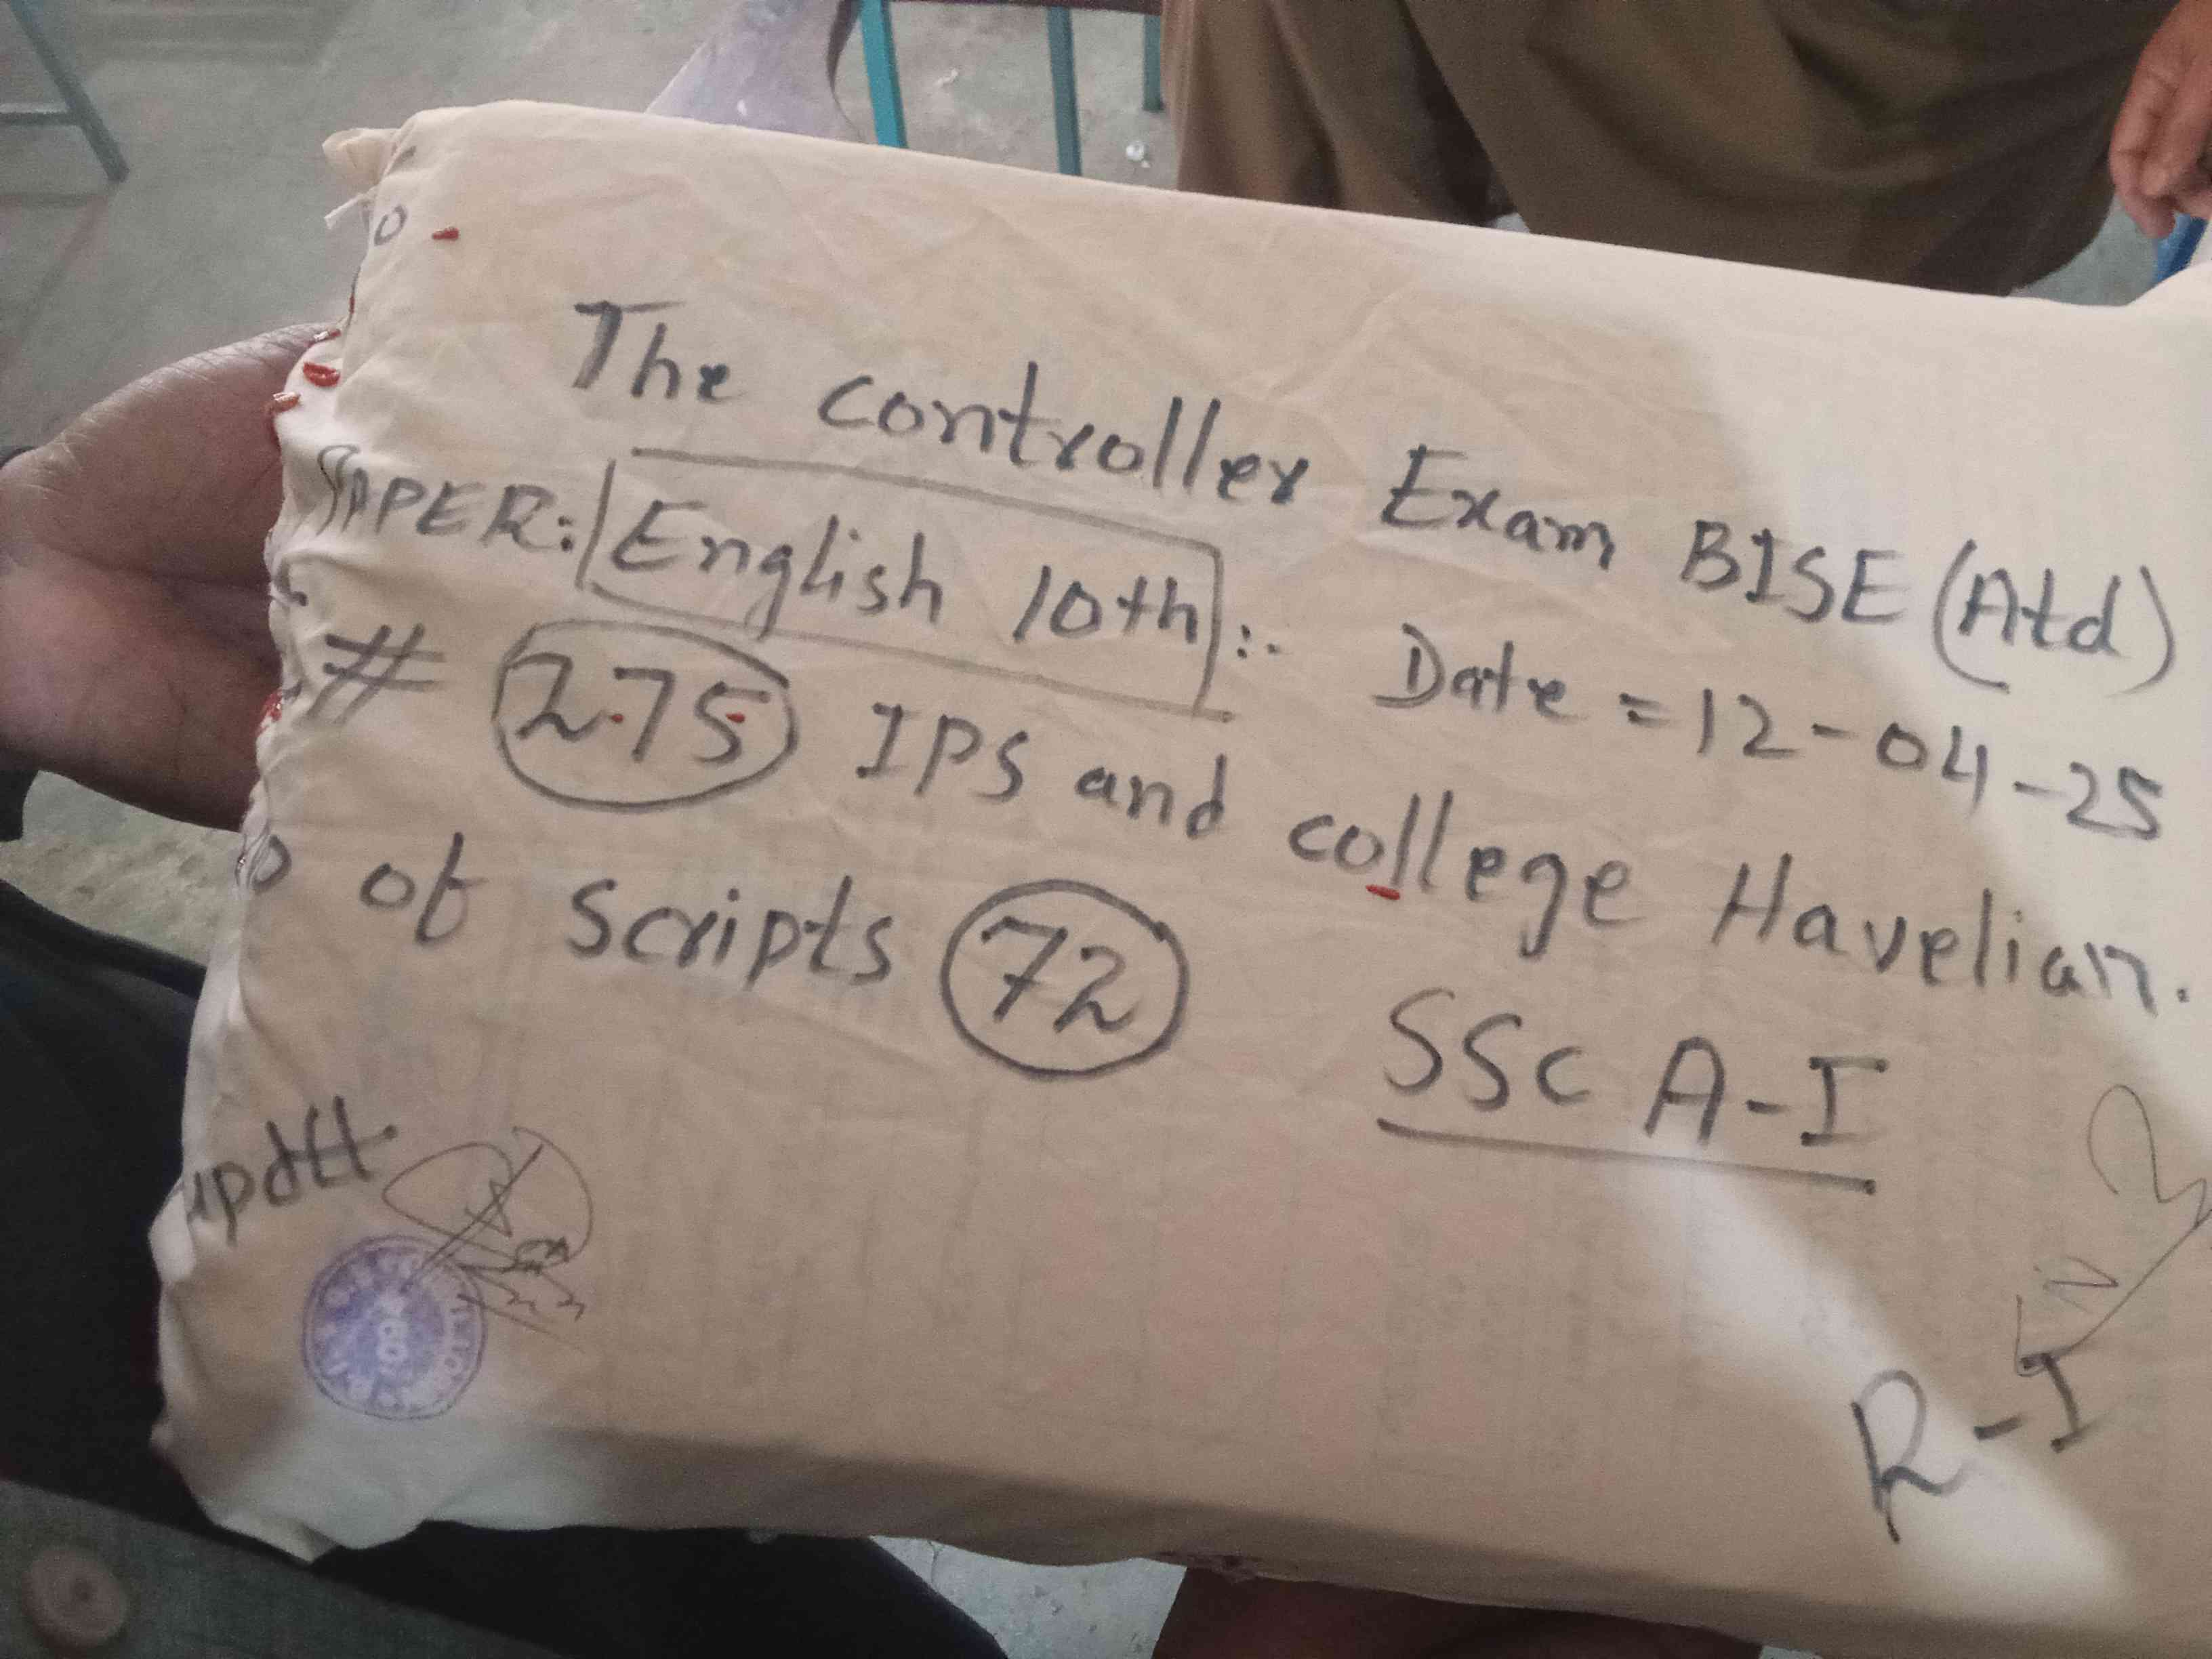 The controller Exam BISE (Atd)
PAPER: English 10th :. Date = 12-04-25
# 275 IPS and college Havelian.
o of scripts 72 SSC A-I
updtt
R-I